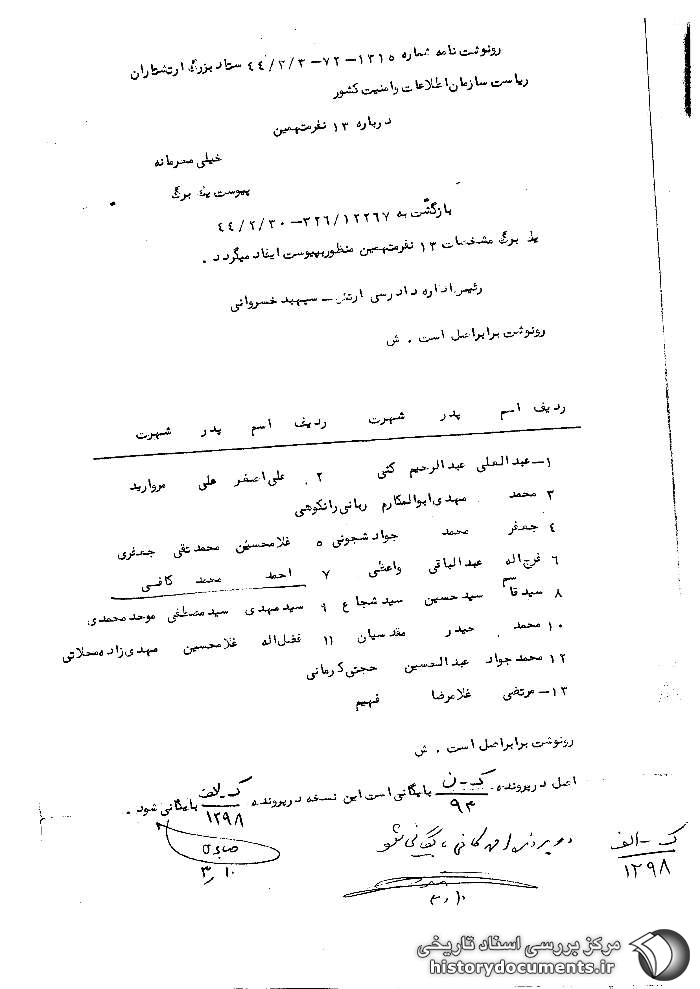 رونوشت نامه شماره ۱۳۱۵-۷۲-۴۴/۲/۳ ستاد بزرگ ارتشتاران
ریاست سازمان اطلاعات و امنیت کشور
درباره ۱۳ نفر متهمین
خیلی محرمانه
پیوست یک برگ
بازگشت به ۳۲۶/۱۲۲۶۷-۴۴/۲/۳۰
یک برگ مشخصات ۱۳ نفر متهمین منظور بپیوست ایفاد میگردد .
رئیس اداره دادرسی ارتش ـ سپهبد خسروانی
رونوشت برابر اصل است . ش
ردیف اسم پدر شهرت ردیف اسم پدر شهرت
۱ـ عبدالعلی عبدالرحیم کنی ۲. علی اصغر علی مروارید
۳ محمد مهدی ابوالمکارم ربانی رانکوهی
۴ جعفر محمد جواد شجونی ۵ غلامحسین محمدتقی جعفری
۶ فرج اله عبدالباقی واعظی ۷ احمد محمد کافی
۸ سید قاسم سید حسین سید شجاع ۹ سید مهدی سید مصطفی موحد محمدی
۱۰ محمد حیدر مقدسیان ۱۱ فضل اله غلامحسین مهدی زاده محلاتی
۱۲ محمد جواد عبدالحسین حجتی کرمانی
۱۳ـ مرتضی غلامرضا فهیم
رونوشت برابر اصل است . ش
اصل در پرونده ک-ن ۹۴ بایگانی است این نسخه در پرونده ک-الف ۱۲۹۸ بایگانی شود .
در پرونده احمد کافی بایگانی شود
ک-الف
۱۲۹۸
۳/۱۰
۳/۱۰
مرکز بررسی اسناد تاریخی
historydocuments.ir